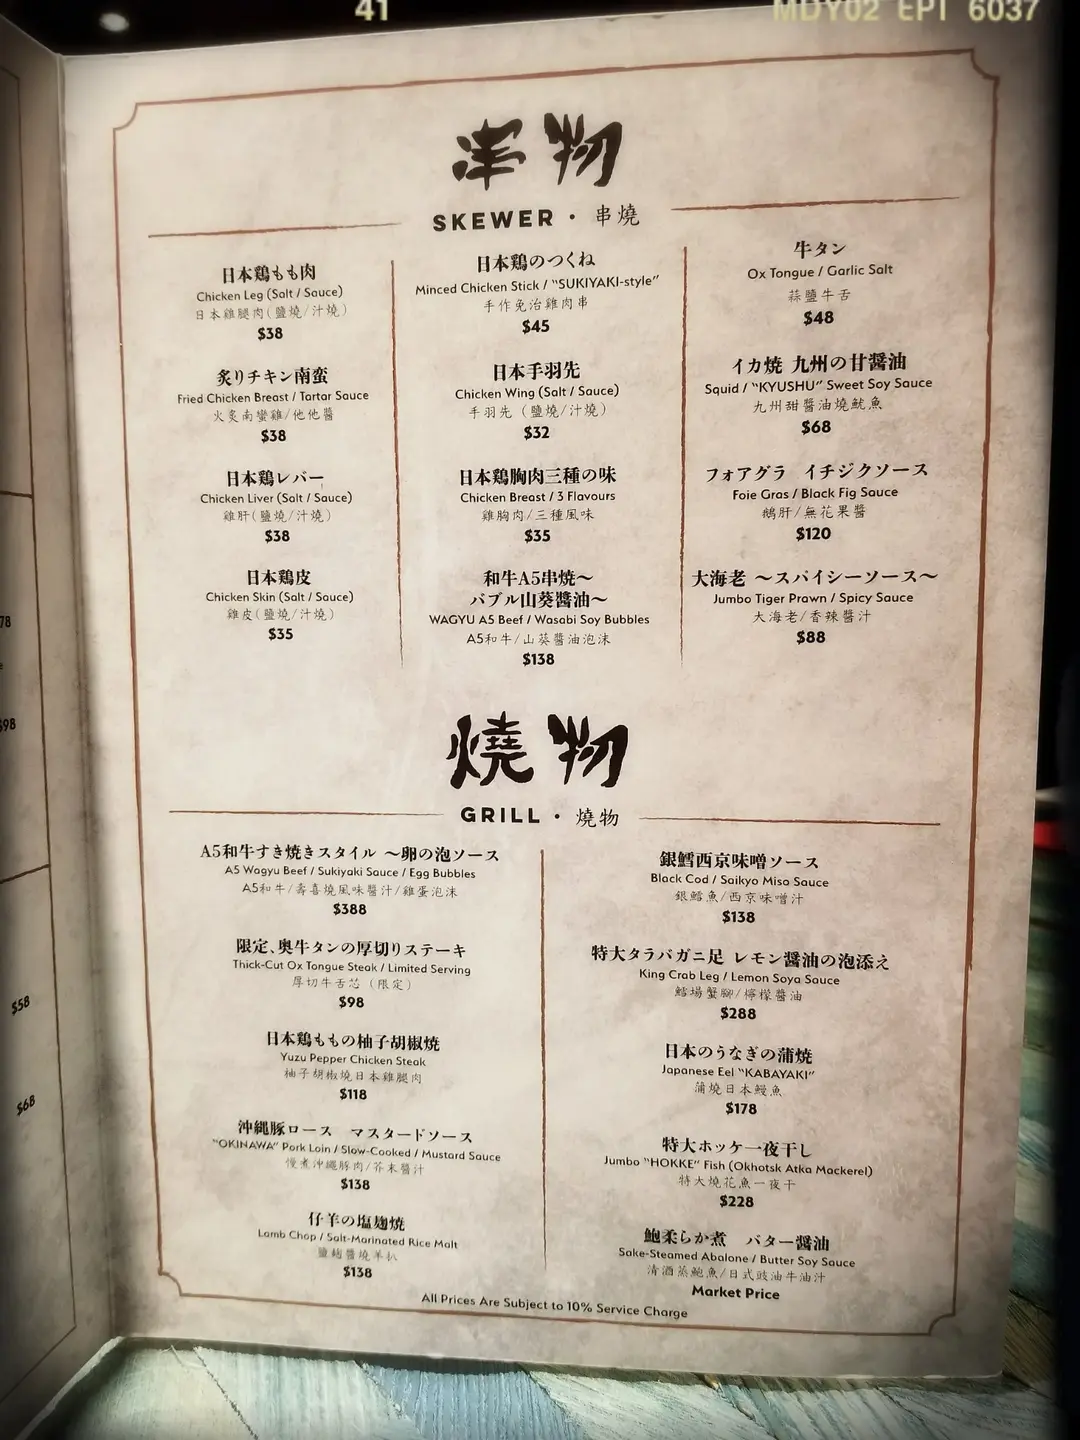 41
MDY02 EPI 6037
串物
SKEWER · 串燒
日本鶏もも肉
Chicken Leg (Salt / Sauce)
日本雞腿肉(鹽燒/汁燒)
$38
炙りチキン南蛮
Fried Chicken Breast / Tartar Sauce
火炙南蠻雞/他他醬
$38
日本鶏レバー
Chicken Liver (Salt / Sauce)
雞肝(鹽燒/汁燒)
$38
日本鶏皮
Chicken Skin (Salt / Sauce)
雞皮(鹽燒/汁燒)
$35
日本鶏のつくね
Minced Chicken Stick / "SUKIYAKI-style"
手作免治雞肉串
$45
日本手羽先
Chicken Wing (Salt / Sauce)
手羽先（鹽燒/汁燒）
$32
日本鶏胸肉三種の味
Chicken Breast / 3 Flavours
雞胸肉/三種風味
$35
和牛A5串焼〜
バブル山葵醬油〜
WAGYU A5 Beef / Wasabi Soy Bubbles
A5和牛/山葵醬油泡沫
$138
牛タン
Ox Tongue / Garlic Salt
蒜鹽牛舌
$48
イカ焼 九州の甘醤油
Squid / "KYUSHU" Sweet Soy Sauce
九州甜醬油燒魷魚
$68
フォアグラ イチジクソース
Foie Gras / Black Fig Sauce
鵝肝/無花果醬
$120
大海老 〜スパイシーソース〜
Jumbo Tiger Prawn / Spicy Sauce
大海老/香辣醬汁
$88
燒物
GRILL · 燒物
A5和牛すき焼きスタイル 〜卵の泡ソース
A5 Wagyu Beef / Sukiyaki Sauce / Egg Bubbles
A5和牛/壽喜燒風味醬汁/雞蛋泡沫
$388
限定、奥牛タンの厚切りステーキ
Thick-Cut Ox Tongue Steak / Limited Serving
厚切牛舌芯（限定）
$98
日本鶏ももの柚子胡椒焼
Yuzu Pepper Chicken Steak
柚子胡椒燒日本雞腿肉
$118
沖縄豚ロース マスタードソース
"OKINAWA" Pork Loin / Slow-Cooked / Mustard Sauce
慢煮沖繩豚肉/芥末醬汁
$138
仔羊の塩麹焼
Lamb Chop / Salt-Marinated Rice Malt
鹽麴醬燒羊扒
$138
銀鱈西京味噌ソース
Black Cod / Saikyo Miso Sauce
銀鱈魚/西京味噌汁
$138
特大タラバガニ足 レモン醤油の泡添え
King Crab Leg / Lemon Soya Sauce
鱈場蟹腳/檸檬醬油
$288
日本のうなぎの蒲焼
Japanese Eel "KABAYAKI"
蒲燒日本鰻魚
$178
特大ホッケ一夜干し
Jumbo "HOKKE" Fish (Okhotsk Atka Mackerel)
特大燒花魚一夜干
$228
鮑柔らか煮 バター醤油
Sake-Steamed Abalone / Butter Soy Sauce
清酒蒸鮑魚/日式豉油牛油汁
Market Price
All Prices Are Subject to 10% Service Charge
78
$98
$58
$68